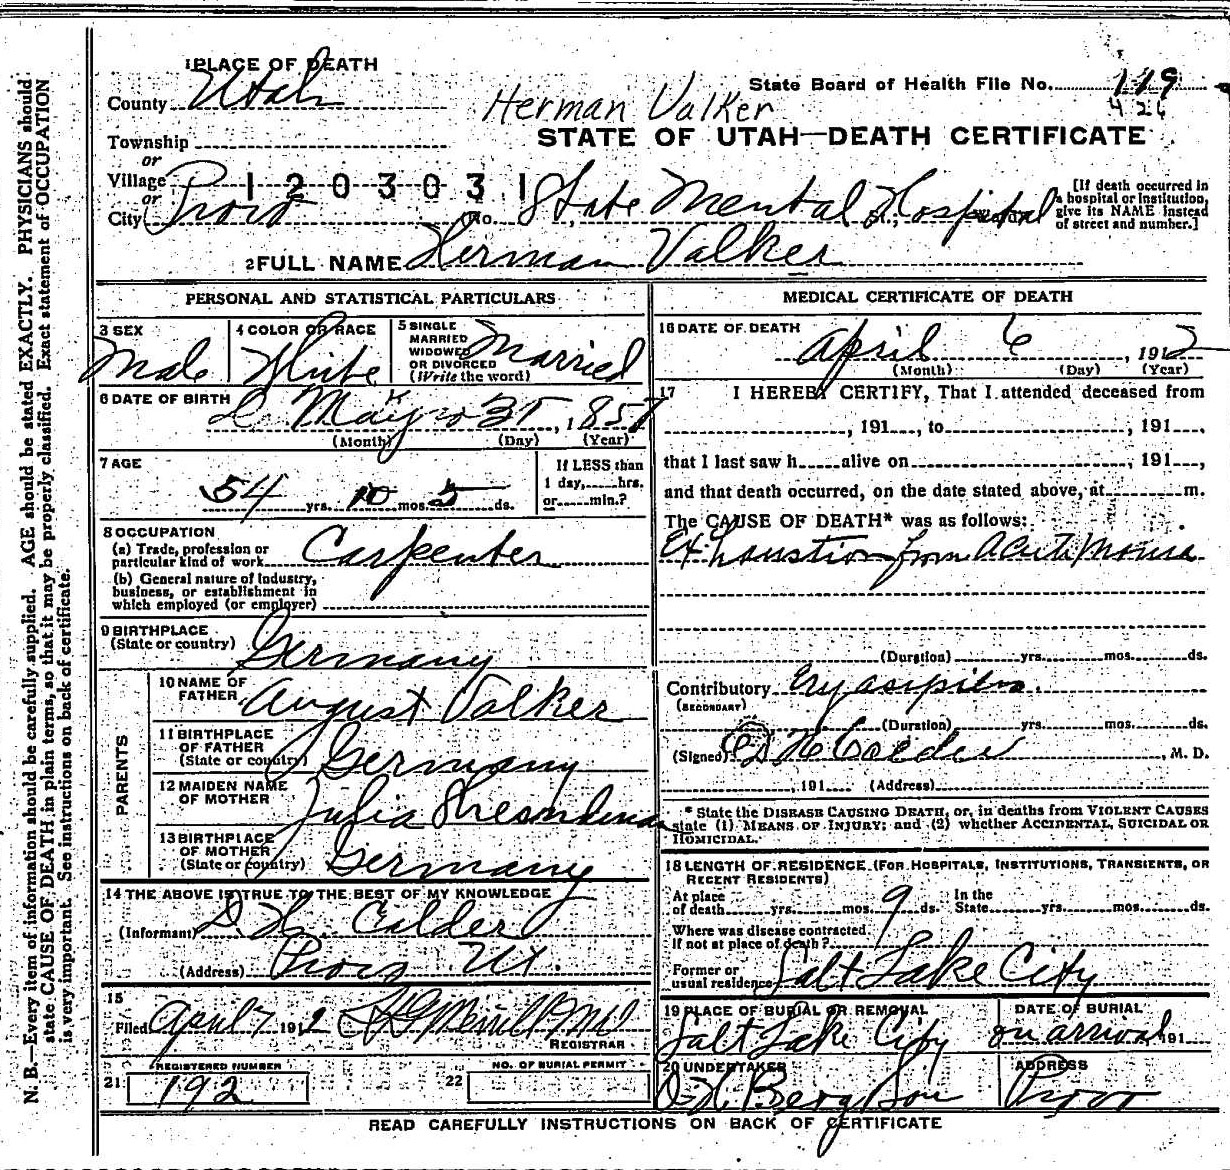 1 PLACE OF DEATH
County Utah
State Board of Health File No. 119
426
Herman Valker
STATE OF UTAH—DEATH CERTIFICATE
Township
or
Village
or
1203031
City Provo (No. State Mental Hospital
[If death occurred in
a hospital or institution,
give its NAME instead
of street and number.]
2 FULL NAME Herman Valker
PERSONAL AND STATISTICAL PARTICULARS
3 SEX
Male
4 COLOR OR RACE
White
5 SINGLE
MARRIED
WIDOWED
OR DIVORCED
(Write the word)
Married
6 DATE OF BIRTH
May 31, 1857
(Month) (Day) (Year)
7 AGE
54 yrs. 10 mos. 5 ds.
If LESS than
1 day, hrs.
or min.?
8 OCCUPATION
(a) Trade, profession or
particular kind of work Carpenter
(b) General nature of industry,
business, or establishment in
which employed (or employer)
9 BIRTHPLACE
(State or country)
Germany
PARENTS
10 NAME OF
FATHER
August Valker
11 BIRTHPLACE
OF FATHER
(State or country)
Germany
12 MAIDEN NAME
OF MOTHER
Julia
13 BIRTHPLACE
OF MOTHER
(State or country)
Germany
14 THE ABOVE IS TRUE TO THE BEST OF MY KNOWLEDGE
(Informant) D. H. Calder
(Address) Provo Ut.
15
Filed April 7 1912 Merrill
REGISTRAR
REGISTERED NUMBER
21 192
NO. OF BURIAL PERMIT
22
MEDICAL CERTIFICATE OF DEATH
16 DATE OF DEATH
April 6, 1912
(Month) (Day) (Year)
17 I HEREBY CERTIFY, That I attended deceased from
, 191 , to , 191 ,
that I last saw h alive on , 191 ,
and that death occurred, on the date stated above, at m.
The CAUSE OF DEATH* was as follows:
Exhaustion from Acute Mania
(Duration) yrs. mos. ds.
Contributory Eryasipilas.
(SECONDARY)
(Duration) yrs. mos. ds.
(Signed) D H Calder, M. D.
, 191 (Address)
* State the DISEASE CAUSING DEATH, or, in deaths from VIOLENT CAUSES
state (1) MEANS OF INJURY; and (2) whether ACCIDENTAL, SUICIDAL OR
HOMICIDAL.
18 LENGTH OF RESIDENCE (FOR HOSPITALS, INSTITUTIONS, TRANSIENTS, OR
RECENT RESIDENTS)
At place
of death yrs. mos. 9 ds.
In the
State yrs. mos. ds.
Where was disease contracted,
if not at place of death?
Former or
usual residence Salt Lake City
19 PLACE OF BURIAL OR REMOVAL
Salt Lake City
DATE OF BURIAL
on arrival 191
20 UNDERTAKER
O. H. Berg & Son
ADDRESS
Provo
READ CAREFULLY INSTRUCTIONS ON BACK OF CERTIFICATE
N. B.—Every item of information should be carefully supplied. AGE should be stated EXACTLY. PHYSICIANS should
state CAUSE OF DEATH in plain terms, so that it may be properly classified. Exact statement of OCCUPATION
is very important. See instructions on back of certificate.